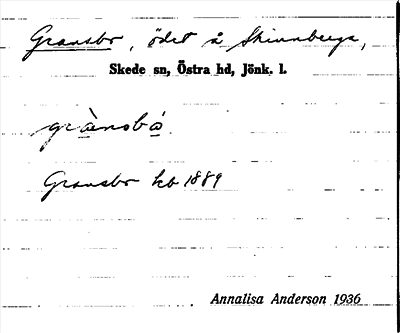 Gransbo, ödet å Skinnberga,
Skede sn, Östra hd, Jönk. l.
grànsbó.
Gransbo hb 1889
Annalisa Anderson 1936